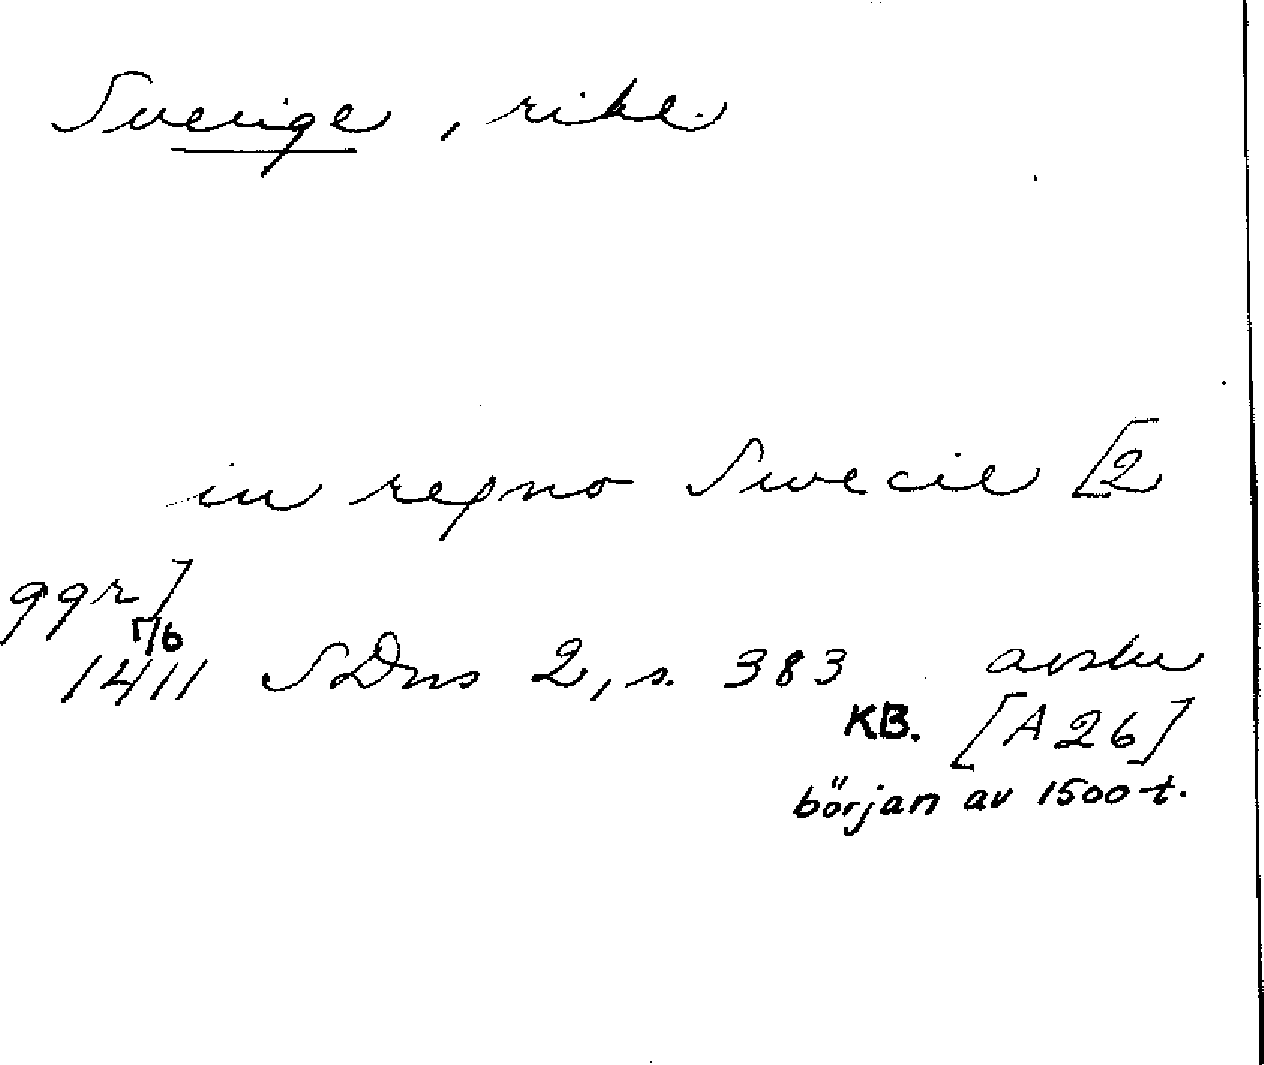 Sverige, rike.
in regno Swecie [2
ggr]
17/6
1411 SDns 2, s. 383 avskr
KB. [A 26]
början av 1500-t.